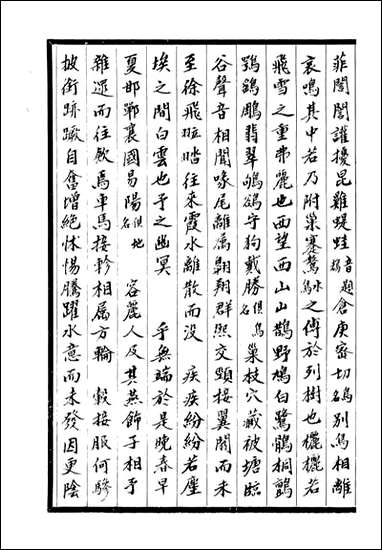 菲閭閭讙擾昆雞蝭蛙音題倉庚密切鳥名別鳥相離
哀鳴其中若乃附巢蹇鷔水鳥之傅於列樹也欐欐若
飛雪之重弗麗也西望西山山鵲野鳩白鷺鶻桐鸇
鶚鷂鵰翡翠鴝鵒守狗戴勝俱鳥名巢枝穴藏被塘臨
谷聲音相聞喙尾離屬翱翔群熙交頸接翼闒而未
至徐飛往來霞水離散而没 疾疾紛紛若塵
埃之間白雲也予之幽冥 乎無端於是晚春早
夏邯鄲襄國易陽俱地名 容麗人及其燕飾子相予
雜遝而往欵焉車馬接軫相屬方輪 轂接服何驂
披銜跡蹶自奮增絕怵惕騰躍水意而未發因更陰